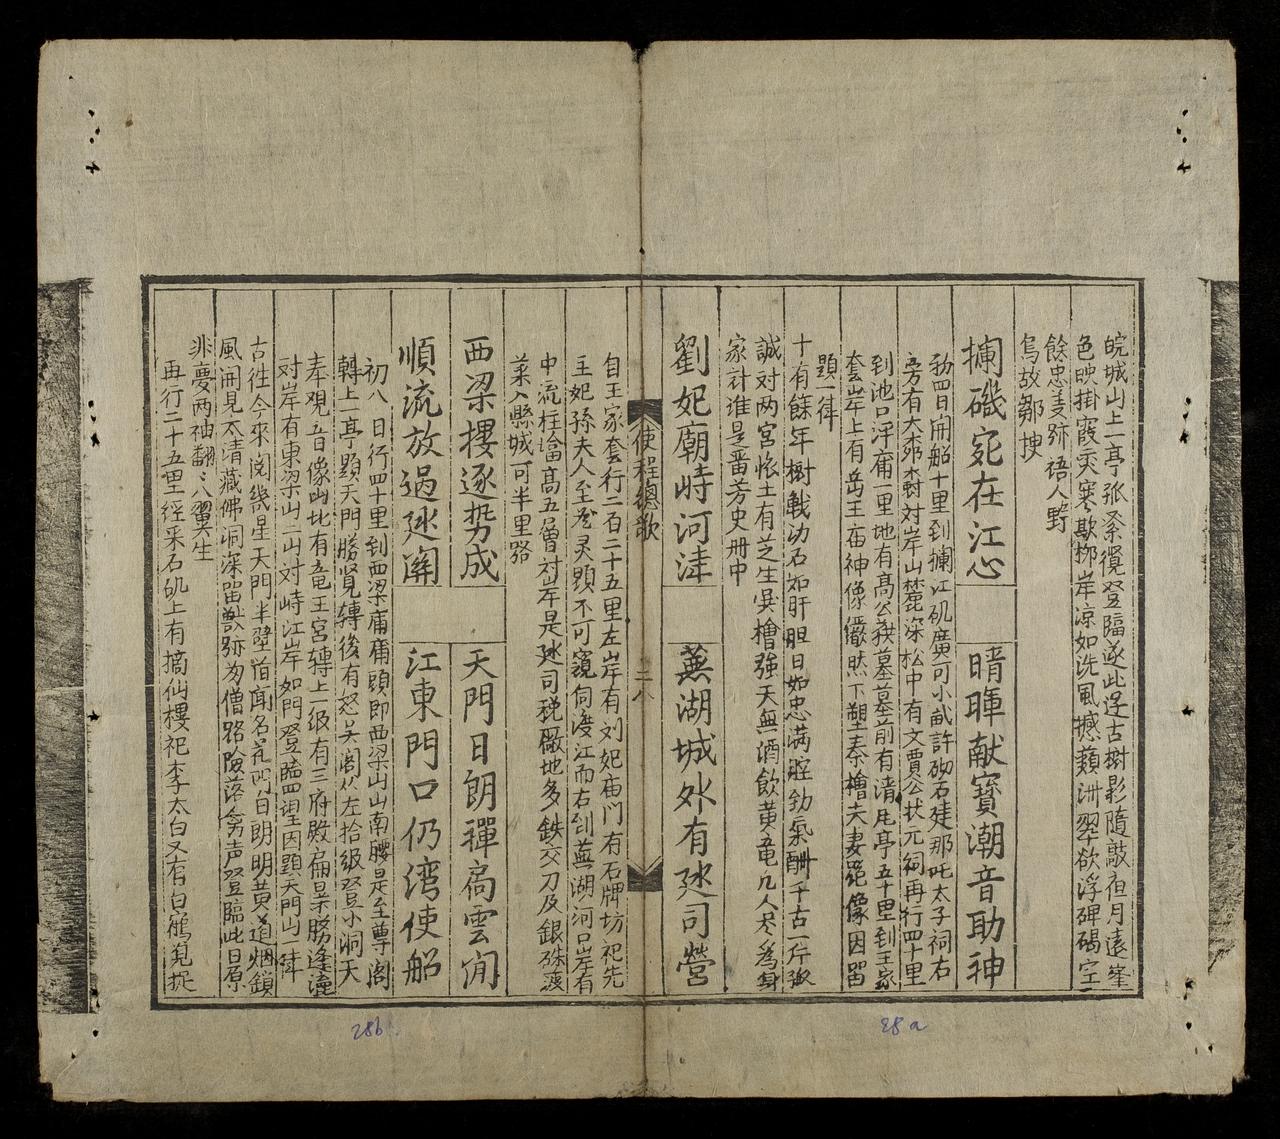 皖城山上一亭張系徫登臨逐此逕古樹影隨敲夜月遠峯
色映掛霞奕寒欺栁岸凉如洗風撼蘋洲翠欲浮碑碣空
餘忠羙跡語人野
烏故鄒挭
攔磯宛在江心
晴暉献寳潮音助神
初四日開船十里到攔江矶廣可小畝許砌石廷那吒太子祠右
旁有大喬樹対岸山麓深松中有文賈公状元祠再行四十里
到池口浮痛一里地有髙公狭墓墓前有清風亭五十里到王家
套岸上有岳王庙神像儼然下塑秦檜夫妻跪像因留
題一律
十有餘年樹戰功石如肝胆日如忠满腔劲氣酬千古一斤孤
誠対两宮怅土有芝生吴檜強天無酒飲黄竜几人尽為身
家計誰是畨芳史册中
劉妃廟峙河津
蕪湖城外有廵司營
使程總歌
二八
自王家套行二百二十五里左岸有刘妃庙门有石牌坊祀先
主妃孫夫人至㳟灵顕不可窺伺渡江而右到蕪湖河口岸有
中流柱論髙五層対岸是廵司税廠地多鉄交刀及銀硃渡
菜入縣城可半里路
西梁摟逐势成
天門日朗禪扃雲閒
順流放過廵関
江東門口仍湾使船
初八日行四十里到西梁痛痛頭即西梁山山南腰是至尊阁
轉上一亭顕天門勝覧轉後有怒关阁从左拾級登小洞天
奉观音像山北有竜王宮轉上一级有三府殿扁呈勝逢瀛
対岸有東梁山二山対峙江岸如門登臨四望因題天門山一律
古徃今來閲幾星天門半壁舊闻名花門日朗明黄道烟鎖
風開見太清藏佛洞深留獸跡为僧路險落禽声登臨此日原
非夢两袖翻〻八翼生
再行二十五里经采石矶上有摘仙樓祀李太白又有白鶴観捉
28b.
28a